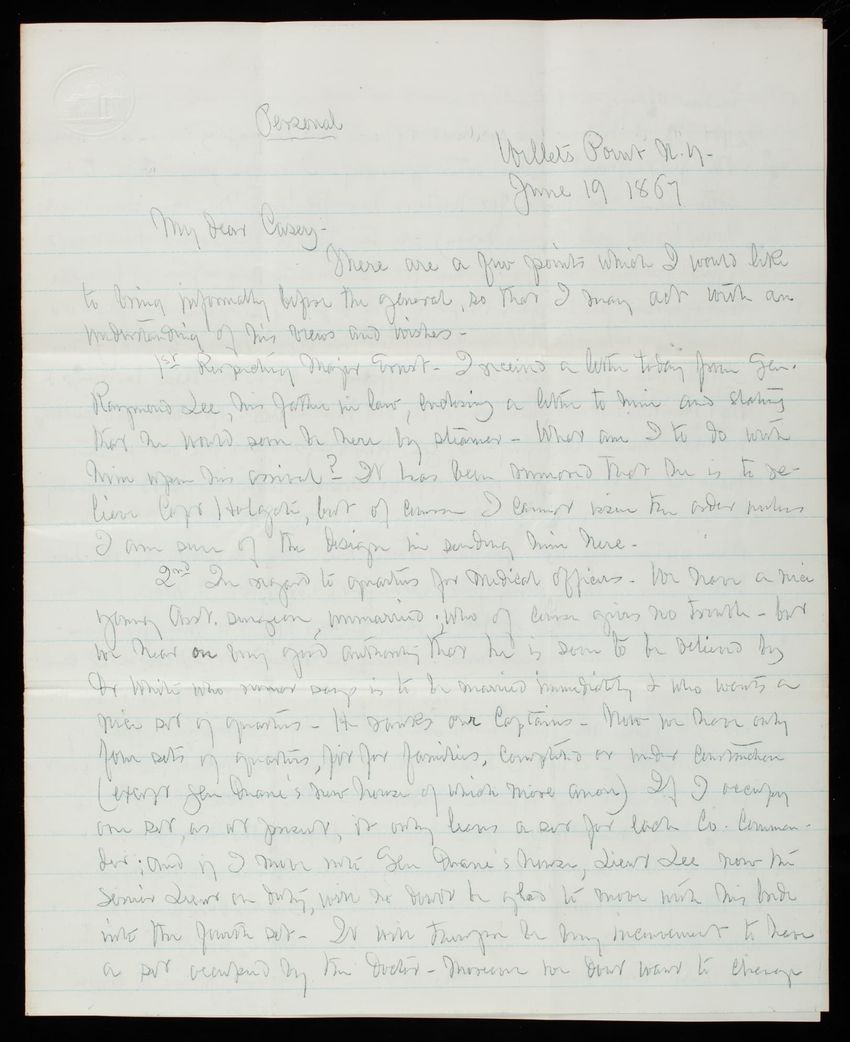 Personal
Willets Point N.Y.
June 19 1867
My Dear Casey-
There are a few points which I would like
to bring informally before the general, so that I may act with an
understanding of his views and wishes-
1st Respecting Major Ernst- I received a letter today from Gen.
Raymond Lee, his father in law, enclosing a letter to him and stating
that he would soon be here by steamer- What am I to do with
him upon his arrival? It has been rumored that he is to re-
lieve Capt Holgate, but of course I cannot issue the order unless
I am sure of the design in sending him here-
2nd In regard to quarters for medical officers- We have a nice
young Asst. surgeon, unmarried, who of course gives no trouble- but
we hear on very good authority that he is soon to be relieved by
Dr White who rumor says is to be married immediately & who wants a
nice set of quarters- He ranks our Captains- Now we have only
four sets of quarters, fit for families, completed or under construction
(except Gen Duane's new house of which more anon) If I occupy
one set, as at present, it only leaves a set for each Co. Comman-
der; and if I move into Gen Duane's house, Lieut Lee now the
senior Lieut on duty, will no doubt be glad to move with his bride
into the fourth set- It will therefore be very inconvenient to have
a set occupied by the Doctor- Moreover we dont want to change